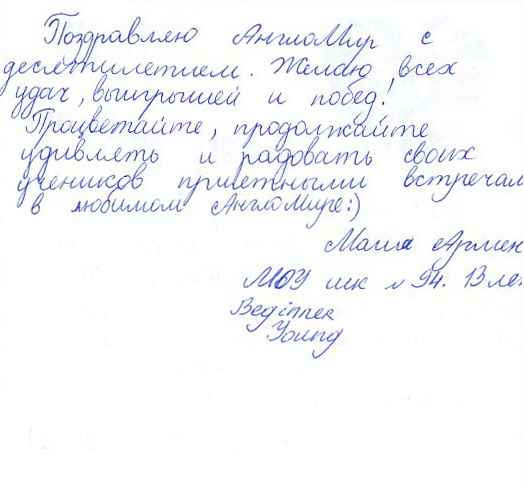 Поздравляю АнглоМир с
десятилетием. Желаю всех
удач, выигрышей и побед!
Процветайте, продолжайте
удивлять и радовать своих
учеников приятными встречам
в любимом АнглоМире:)
Маша Армен
МОУ шк № 94. 13 ле
Beginner
Young